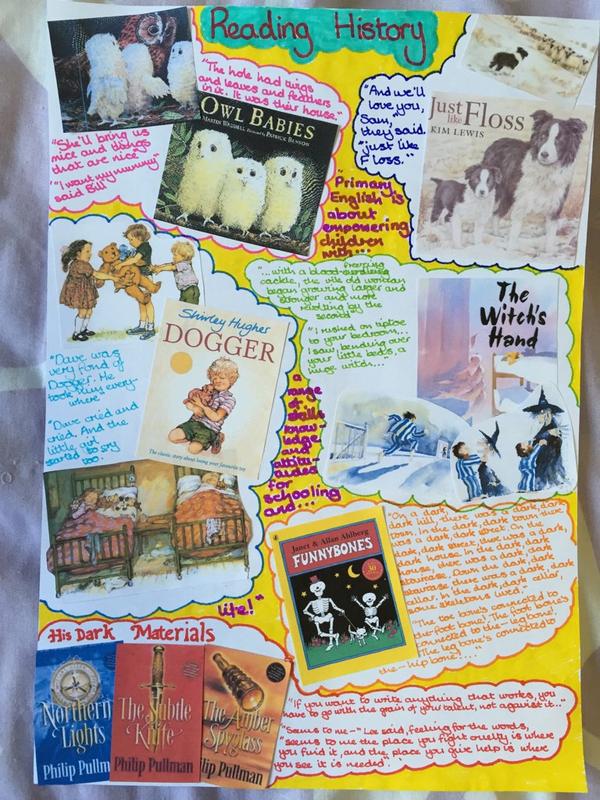 Reading History
"The hole had twigs
and leaves and feathers
in it. It was their house."
OWL BABIES
MARTIN WADDELL Illustrated by PATRICK BENSON
"She'll bring us
nice and things
that are nice"
"I want my mummy"
said Bill
"And we'll
love you,
Sam,"
they said.
"just like
Floss."
Just
like Floss
KIM LEWIS
"Primary
English is
about
empowering
children
with...
a
range
of skills
know
ledge
and
for
schooling
and...
life!"
Shirley Hughes
DOGGER
The classic story about losing your favourite toy
"Dave was
very fond of
Dogger. He
took every-
where"
"Dave cried and
cried. And the
little girl
started to cry
too.
"...with a blood-
freezing
cackle, the vile old woman
began growing larger and
stronger and more
by the
second"
"I rushed on tiptoe
to your bedroom...
I saw, bending over
your little beds, a
huge witch...
The
Witch's
Hand
Janet & Allan Ahlberg
FUNNYBONES
30
"On a dark, dark
dark hill, there was a dark, dark
town, in the dark, dark town, there
was a dark, dark street. In the
dark, dark street there was a dark,
dark house. In the dark, dark
house, there was a dark, dark
staircase. Down the dark, dark
staircase there was a dark, dark
cellar. In the dark, dark cellar,
some skeletons lived."
"The toe bone's connected to
the-foot bone! The foot bone's
connected to the-leg bone!
The leg bone's connected to
the-hip bone!..."
His Dark Materials
Northern
Lights
Philip Pullm
The Subtle
Knife
Philip Pullman
The Amber
Spyglass
lip Pullman
"If you want to write anything that works, you
have to go with the grain of your talent, not against it..."
"Seems to me-" Lee said, feeling for the words,
"seems to me the place you fight cruelty is where
you find it, and the place you give help is where
you see it is needed."